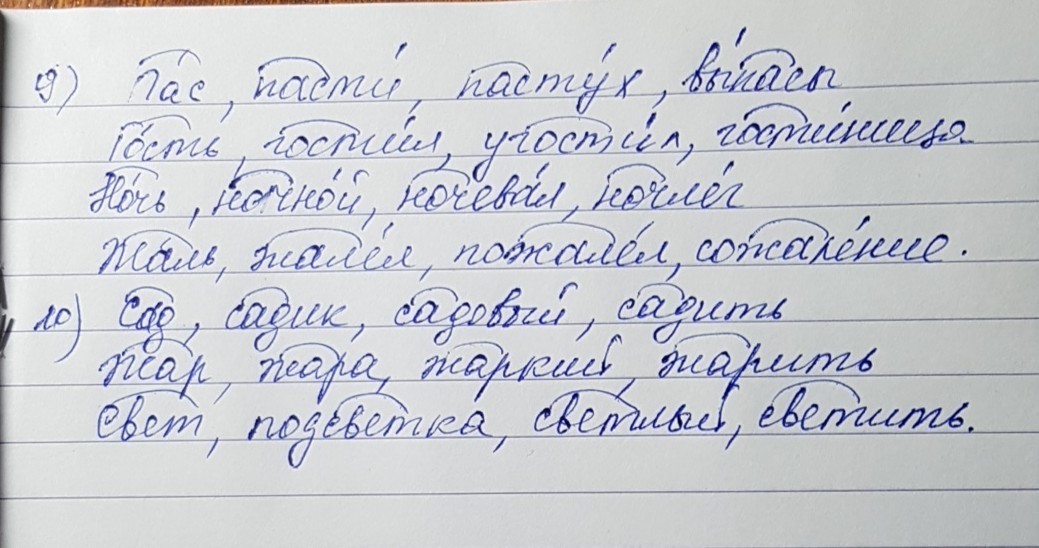 9) Пас, пасти́, пасту́х, вы́пасы
Го́сть, гости́л, угости́л, гости́ница
Но́чь, ночно́й, ночева́л, ночле́г
Жаль, жале́л, пожале́л, сожале́ние.
10) Сад, садик, садовый, садить
Жар, жара, жаркий, жарить
Свет, подсветка, светлый, светить.